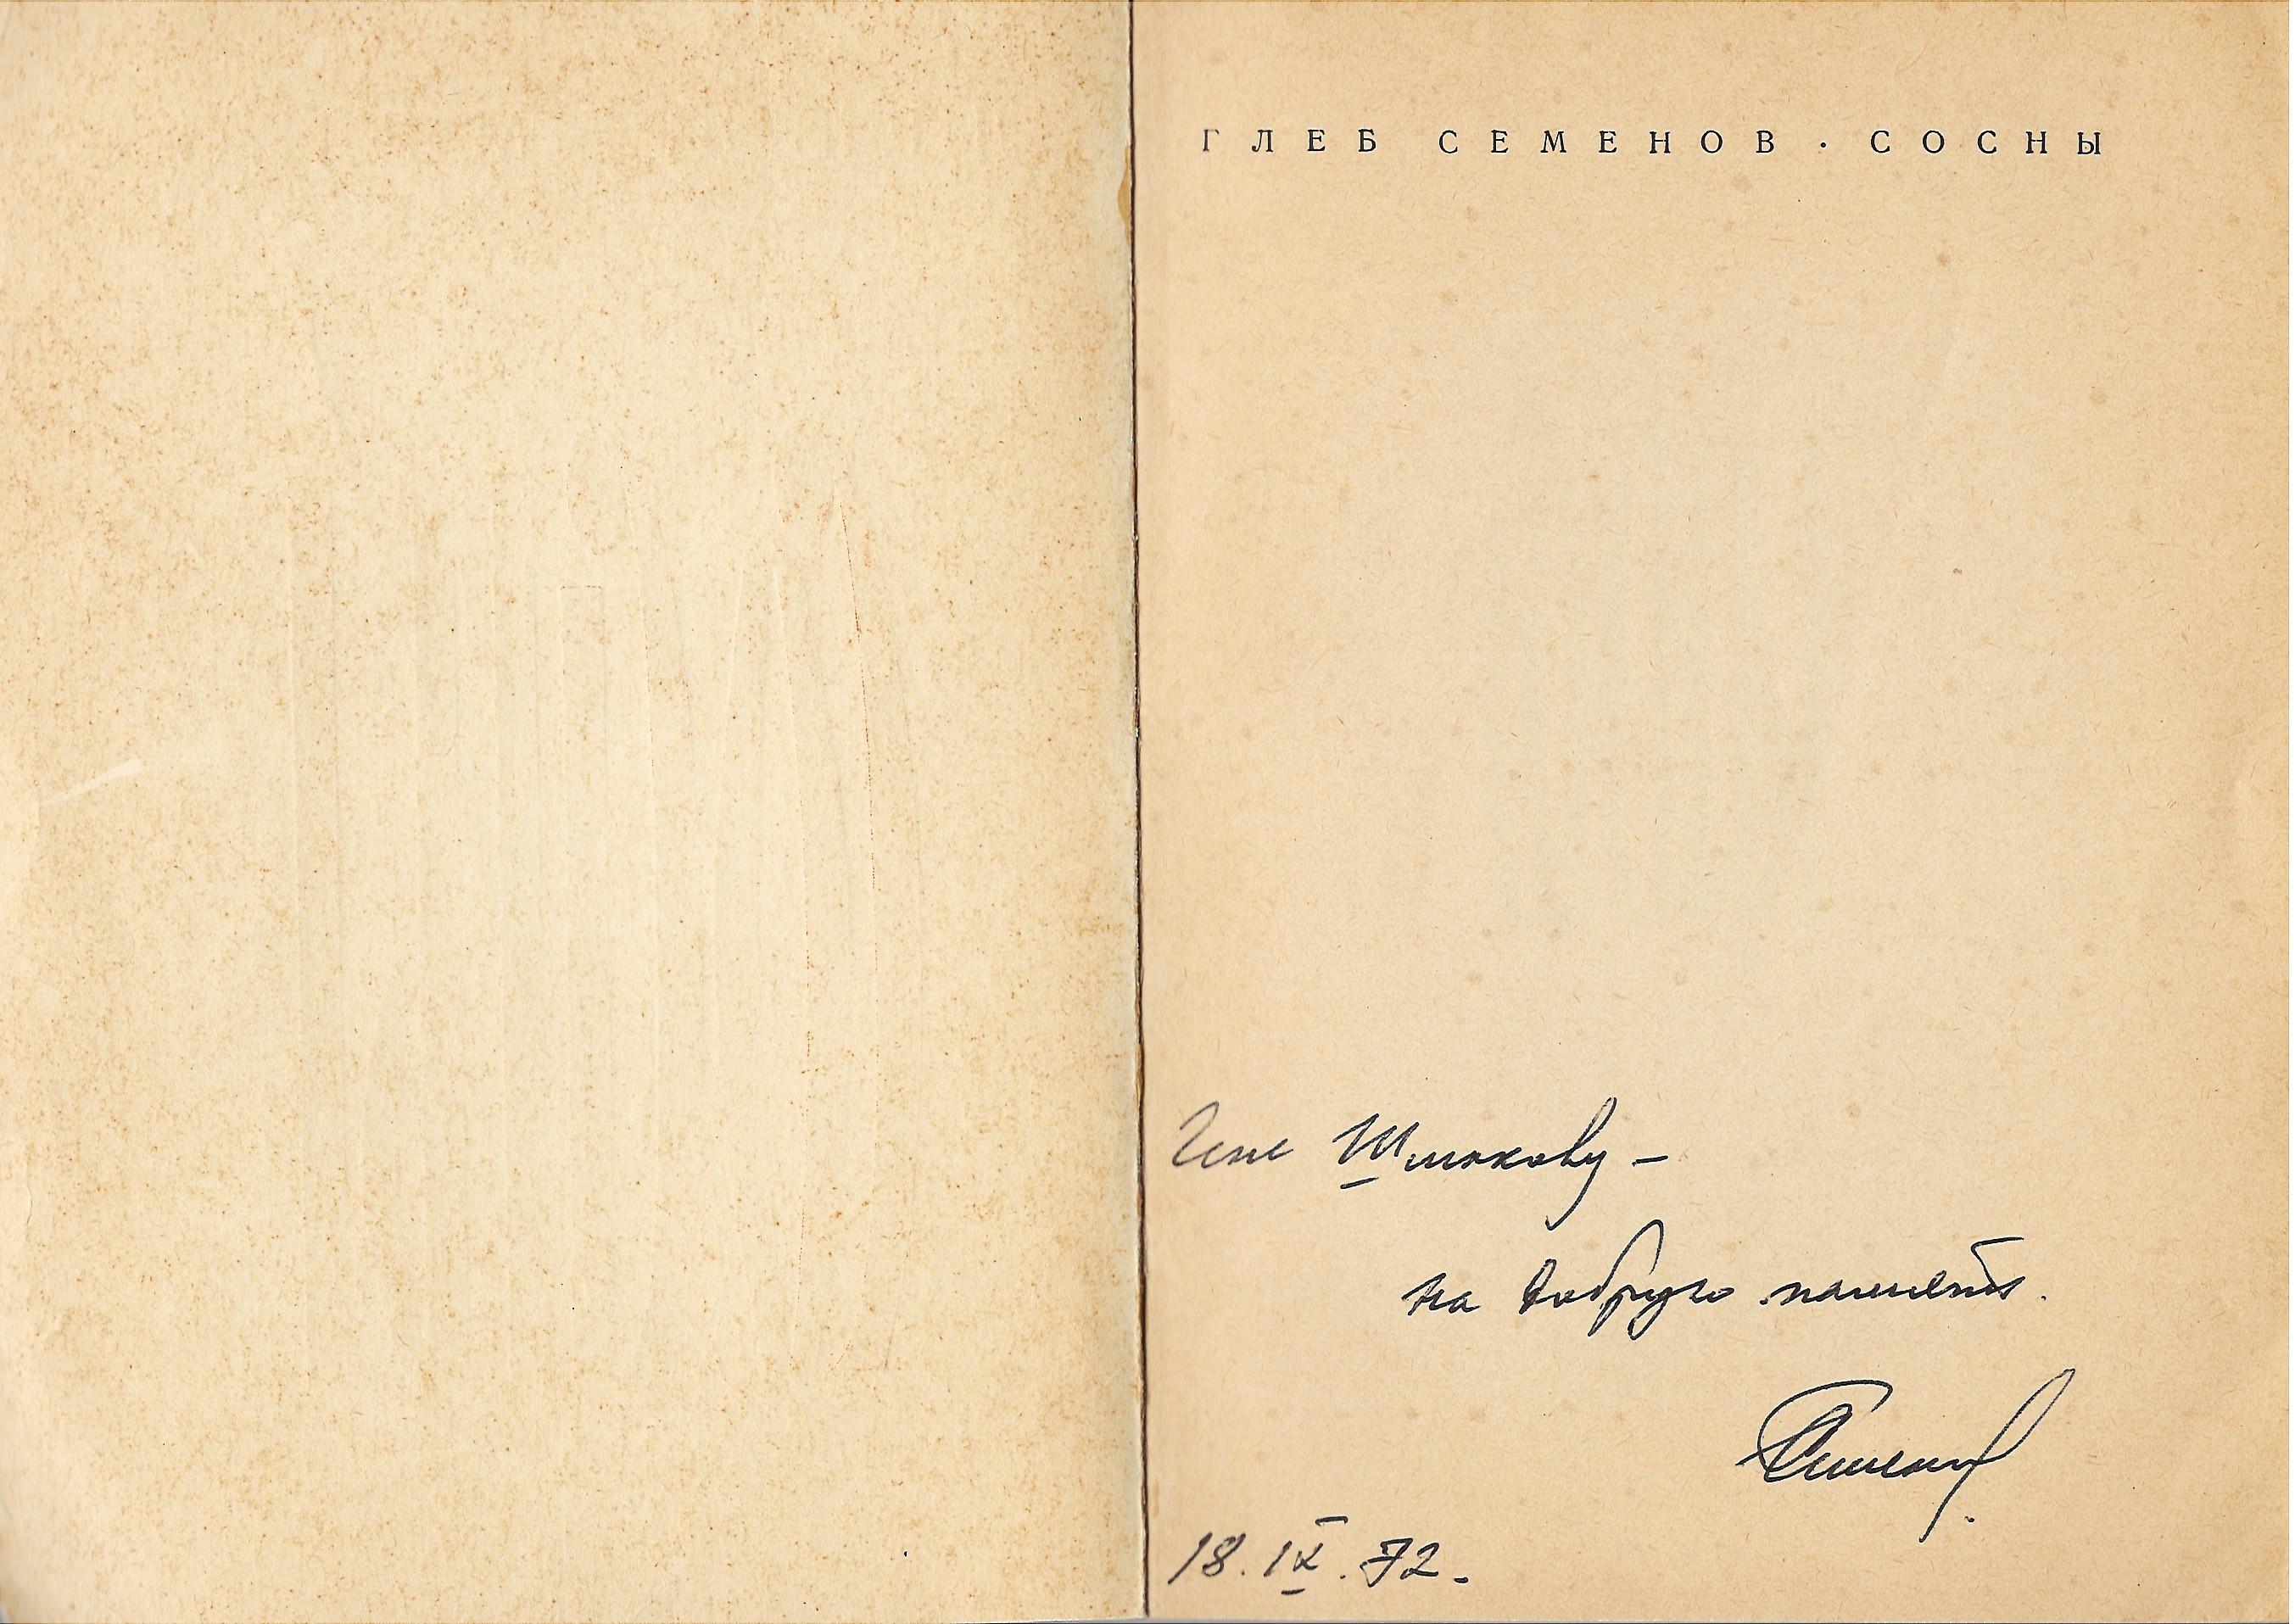 ГЛЕБ СЕМЕНОВ · СОСНЫ
Гене Шмакову –
на добрую память.
Семенов
18.IX.72.